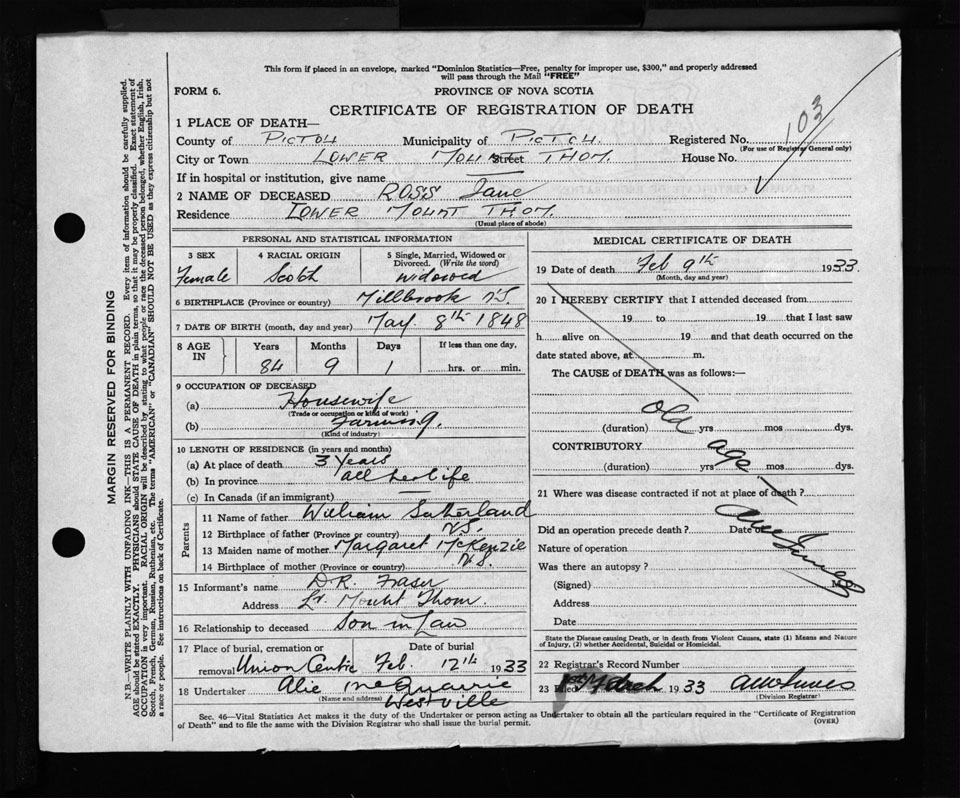 This form if placed in an envelope, marked "Dominion Statistics—Free, penalty for improper use, $300," and properly addressed
will pass through the Mail "FREE"
FORM 6.
PROVINCE OF NOVA SCOTIA
CERTIFICATE OF REGISTRATION OF DEATH
103
1 PLACE OF DEATH—
County of PICTOU Municipality of PICTOU Registered No.
(For use of Registrar General only)
City or Town LOWER MOUNT Street THOM. House No.
If in hospital or institution, give name
2 NAME OF DECEASED ROSS Jane
Residence LOWER MOUNT THOM.
(Usual place of abode)
PERSONAL AND STATISTICAL INFORMATION
3 SEX 4 RACIAL ORIGIN 5 Single, Married, Widowed or Divorced. (Write the word)
Female Scotch widowed
6 BIRTHPLACE (Province or country) Millbrook N.S.
7 DATE OF BIRTH (month, day and year) May. 8th 1848
8 AGE IN Years Months Days If less than one day,
84 9 1 hrs. or min.
9 OCCUPATION OF DECEASED
(a) Housewife
(Trade or occupation or kind of work)
(b) Farming.
(Kind of industry)
10 LENGTH OF RESIDENCE (in years and months)
(a) At place of death 3 Years
(b) In province all her life
(c) In Canada (if an immigrant)
Parents
11 Name of father William Sutherland
12 Birthplace of father (Province or country) N.S.
13 Maiden name of mother Margaret McKenzie
14 Birthplace of mother (Province or country) N.S.
15 Informant's name D.R. Fraser
Address Lr. Mount Thom.
16 Relationship to deceased Son in Law
17 Place of burial, cremation or removal Date of burial
Union Centre Feb. 12th 1933
18 Undertaker Alie McQuarrie
(Name and address) Westville
MEDICAL CERTIFICATE OF DEATH
19 Date of death Feb 9th 1933.
(Month, day and year)
20 I HEREBY CERTIFY that I attended deceased from
19 to 19 that I last saw
h alive on 19 and that death occurred on the
date stated above, at m.
The CAUSE of DEATH was as follows:—
Old
(duration) yrs mos dys.
CONTRIBUTORY age
(duration) yrs mos. dys.
21 Where was disease contracted if not at place of death?
Did an operation precede death? Date of
Nature of operation
Was there an autopsy?
(Signed) M.
Address
Date
State the Disease causing Death, or in death from Violent Causes, state (1) Means and Nature
of Injury, (2) whether Accidental, Suicidal or Homicidal.
22 Registrar's Record Number
23 Filed March 1933
(Division Registrar)
Sec. 46—Vital Statistics Act makes it the duty of the Undertaker or person acting as Undertaker to obtain all the particulars required in the "Certificate of Registration
of Death" and to file the same with the Division Registrar who shall issue the burial permit.
(OVER)
MARGIN RESERVED FOR BINDING
N.B.—WRITE PLAINLY WITH UNFADING INK—THIS IS A PERMANENT RECORD. Every item of information should be carefully supplied.
AGE should be stated EXACTLY. PHYSICIANS should STATE CAUSE OF DEATH in plain terms, so that it may be properly classified. Exact statement of
OCCUPATION is very important. RACIAL ORIGIN will be described by stating to what people or race the deceased person belonged, whether English, Irish,
Scotch, French, German, Russian, Ruthenian, etc. The terms "AMERICAN" or "CANADIAN" SHOULD NOT BE USED as they express citizenship but not
a race or people. See instructions on back of Certificate.